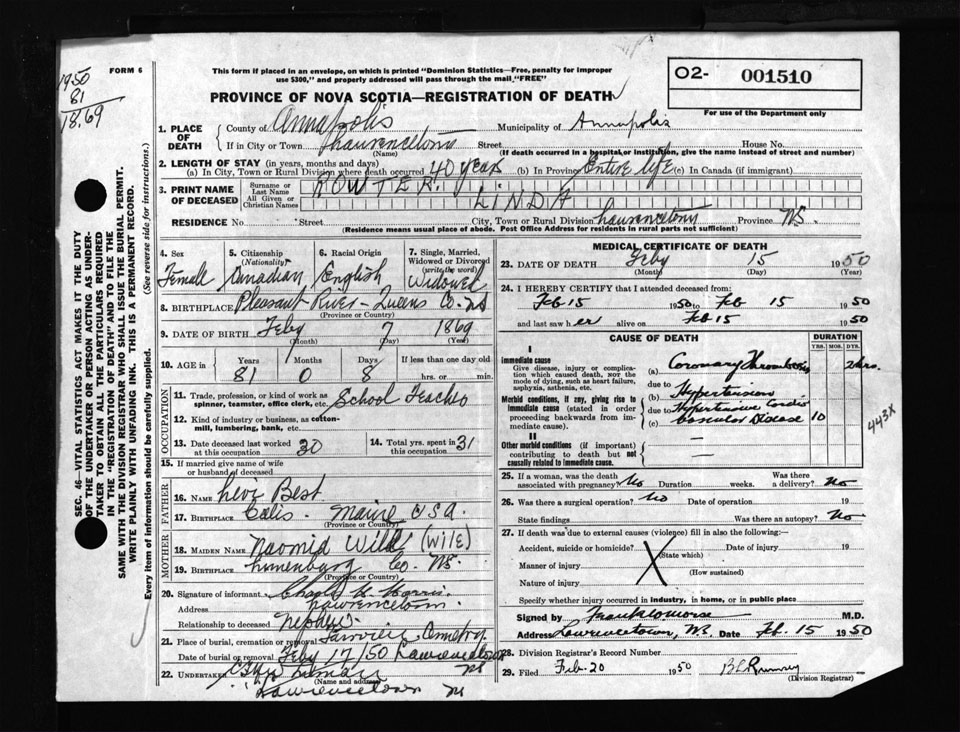 1950
81
18.69
FORM 6
This form if placed in an envelope, on which is printed "Dominion Statistics—Free, penalty for improper
use $300," and properly addressed will pass through the mail, "FREE"
O2- 001510
PROVINCE OF NOVA SCOTIA—REGISTRATION OF DEATH
For use of the Department only
SEC. 46—VITAL STATISTICS ACT MAKES IT THE DUTY
OF THE UNDERTAKER OR PERSON ACTING AS UNDER-
TAKER TO OBTAIN ALL THE PARTICULARS REQUIRED
IN THE "REGISTRATION OF DEATH" AND TO FILE THE
SAME WITH THE DIVISION REGISTRAR WHO SHALL ISSUE THE BURIAL PERMIT.
WRITE PLAINLY WITH UNFADING INK. THIS IS A PERMANENT RECORD.
Every item of information should be carefully supplied. (See reverse side for instructions.)
1. PLACE OF DEATH
County of Annapolis Municipality of Annapolis
If in City or Town Lawrencetown Street House No.
(Name) (If death occurred in a hospital or institution, give the name instead of street and number)
2. LENGTH OF STAY (in years, months and days)
(a) In City, Town or Rural Division where death occurred 40 years (b) In Province Entire life (c) In Canada (if immigrant)
3. PRINT NAME OF DECEASED
Surname or Last Name ROWTER.
All Given or Christian Names LINDA
RESIDENCE No. Street City, Town or Rural Division Lawrencetown Province NS.
(Residence means usual place of abode. Post Office Address for residents in rural parts not sufficient)
4. Sex 5. Citizenship (Nationality) 6. Racial Origin 7. Single, Married, Widowed or Divorced (write the word)
Female Canadian English Widowed
8. BIRTHPLACE Pleasant River - Queens Co. NS
(Province or Country)
9. DATE OF BIRTH Feby 7 1869
(Month) (Year)
10. AGE in Years Months Days If less than one day old
81 0 8 hrs. or min.
OCCUPATION
11. Trade, profession, or kind of work as
spinner, teamster, office clerk, etc. School Teacher
12. Kind of industry or business, as cotton-
mill, lumbering, bank, etc.
13. Date deceased last worked
at this occupation 30
14. Total yrs. spent in
this occupation 31
15. If married give name of wife
or husband of deceased
FATHER
16. NAME Levi Best
17. BIRTHPLACE Calis. Maine USA.
(Province or Country)
MOTHER
18. MAIDEN NAME Naomid Wild (Wile)
19. BIRTHPLACE Lunenburg Co. NS.
(Province or Country)
20. Signature of informant Morris.
Address Lawrencetown.
Relationship to deceased Nephew.
21. Place of burial, cremation or removal
Date of burial or removal Feby 17/50 Lawrencetown
22. UNDERTAKER NS
(Name and address)
Lawrencetown NS
MEDICAL CERTIFICATE OF DEATH
23. DATE OF DEATH Feby 15 1950
(Month) (Day) (Year)
24. I HEREBY CERTIFY that I attended deceased from:
Feb 15 1950 to Feb 15 1950
and last saw her alive on Feb 15 1950
CAUSE OF DEATH DURATION
YRS. MOS. DYS.
I
Immediate cause
Give disease, injury or complica-
tion which caused death, not the
mode of dying, such as heart failure,
asphyxia, asthenia, etc.
(a) Coronary Thrombosis 2 hrs.
due to
Morbid conditions, if any, giving rise to
immediate cause (stated in order
proceeding backwards from im-
mediate cause).
(b) Hypertension
due to Hypertensive Cardio
(c) vascular Disease 10
443X
II
Other morbid conditions (if important)
contributing to death but not
causally related to immediate cause.
25. If a woman, was the death
associated with pregnancy? No Duration weeks. Was there
a delivery? No
26. Was there a surgical operation? No Date of operation 19
State findings Was there an autopsy? No
27. If death was due to external causes (violence) fill in also the following:—
Accident, suicide or homicide? Date of injury 19
(State which)
Manner of injury
(How sustained)
Nature of injury
Specify whether injury occurred in industry, in home, or in public place
Signed by Frank Morse M.D.
Address Lawrencetown, NS. Date Feb. 15 1950
28. Division Registrar's Record Number
29. Filed Feb. 20 1950
(Division Registrar)